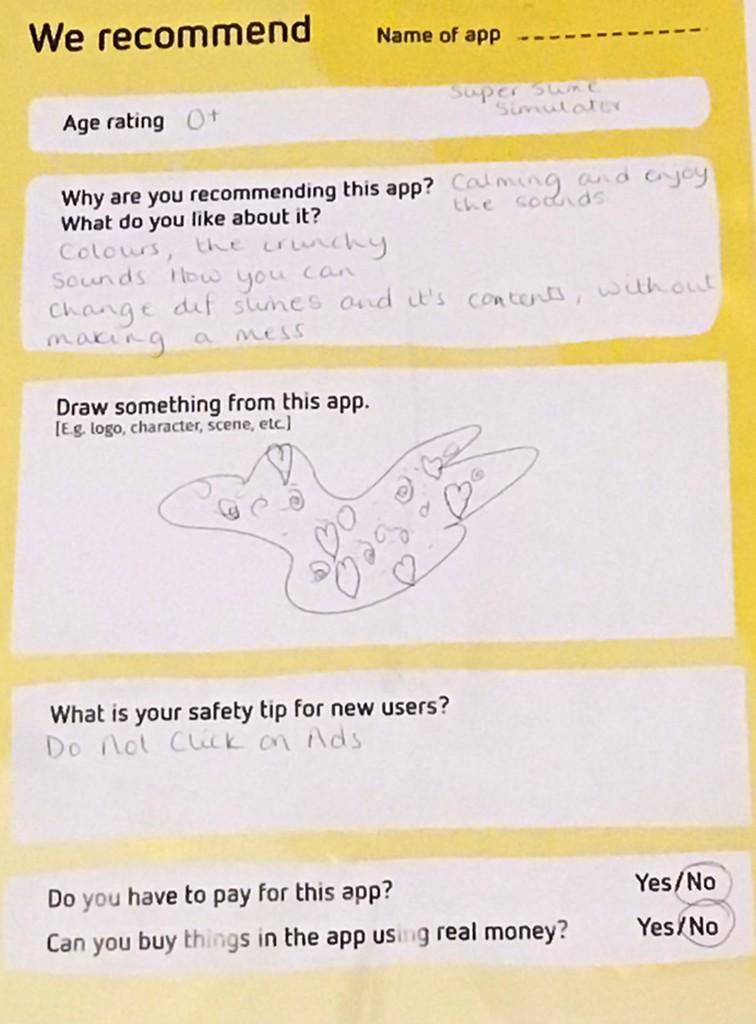 We recommend Name of app
Super Slime
Simulator
Age rating 0+
Why are you recommending this app? Calming and enjoy
What do you like about it? the sounds
Colours, the crunchy
sounds How you can
change dif slimes and it's contents, without
making a mess
Draw something from this app.
[E.g. logo, character, scene, etc.]
What is your safety tip for new users?
Do Not Click on Ads
Do you have to pay for this app? Yes/No
Can you buy things in the app using real money? Yes/No